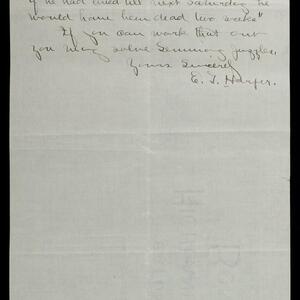 if he had lived till next Saturday he
would have been dead two weeks"
If you can work that out
you may solve Lemmings juggles.
Yours Sincerely
E. T. Harper.